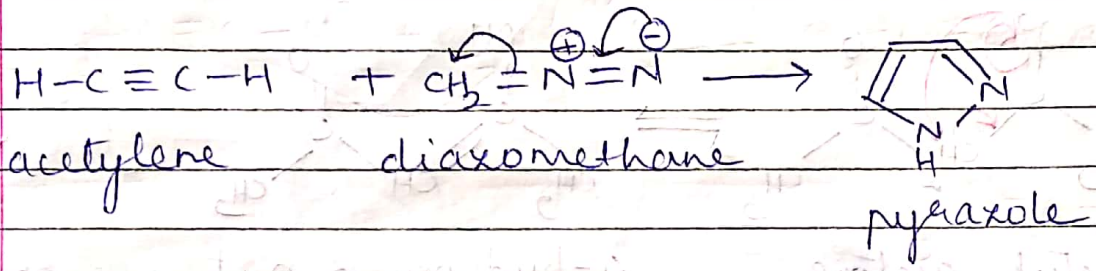 H-C≡C-H + CH₂=N⊕=N⊖ ⟶ N N H
acetylene diazomethane
pyrazole